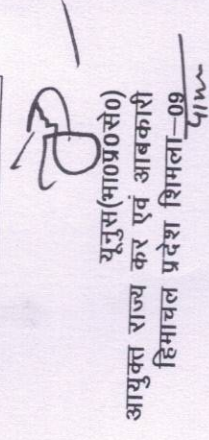 यूनुस(भा0प्र0से0)
आयुक्त राज्य कर एवं आबकारी
हिमाचल प्रदेश शिमला—09